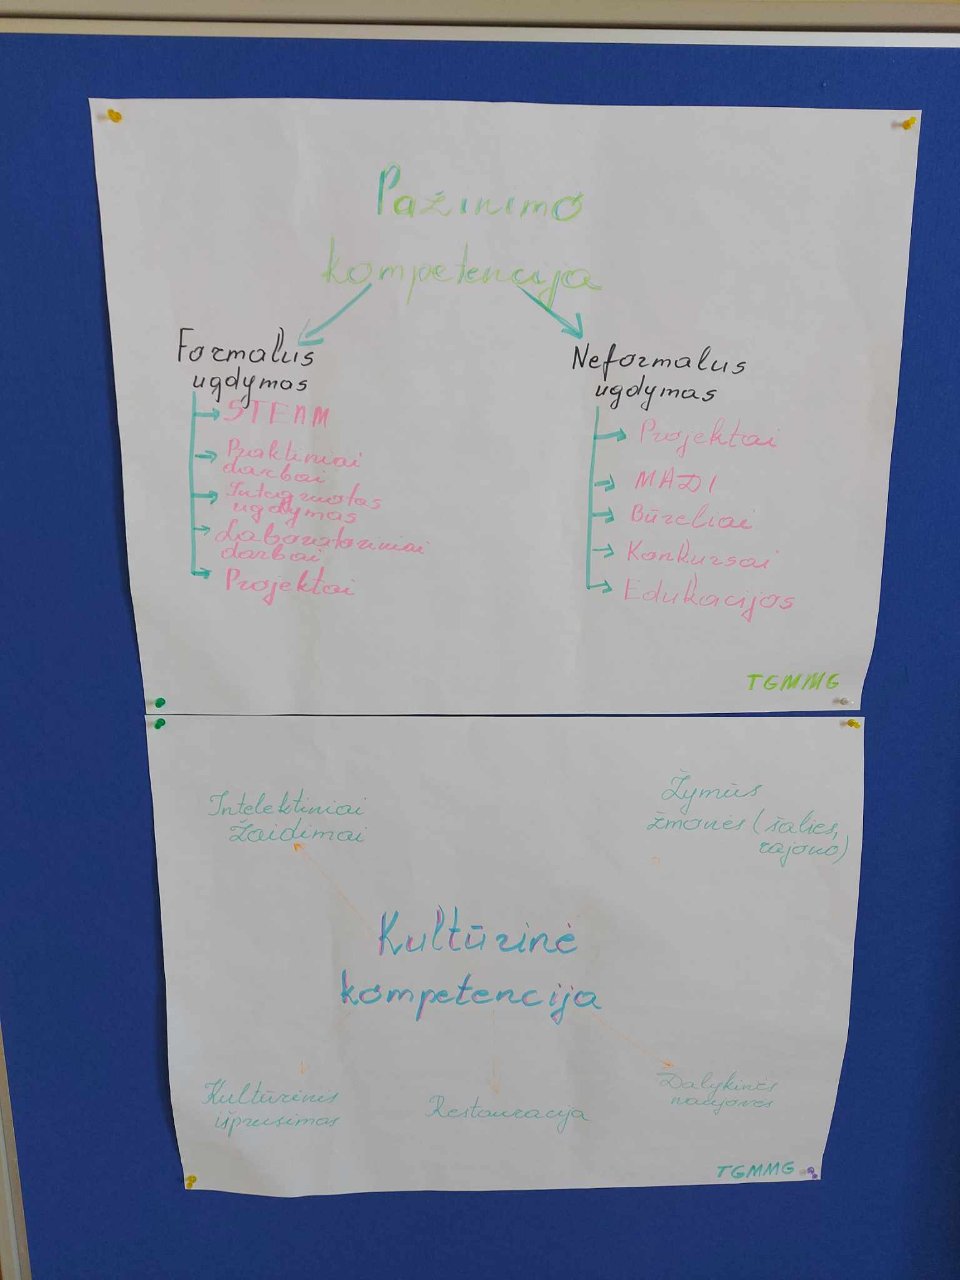 Pažinimo
kompetencija
Formalus
ugdymas
STEAM
Praktiniai
darbai
Integruotas
ugdymas
Laboratoriniai
darbai
Projektai
Neformalus
ugdymas
Projektai
MADI
Būreliai
Konkursai
Edukacijos
TGMMG
Intelektiniai
žaidimai
Žymūs
žmonės (šalies,
rajono)
Kultūrinė
kompetencija
Kultūrinis
išprusimas
Restauracija
Dalykinės
TGMMG